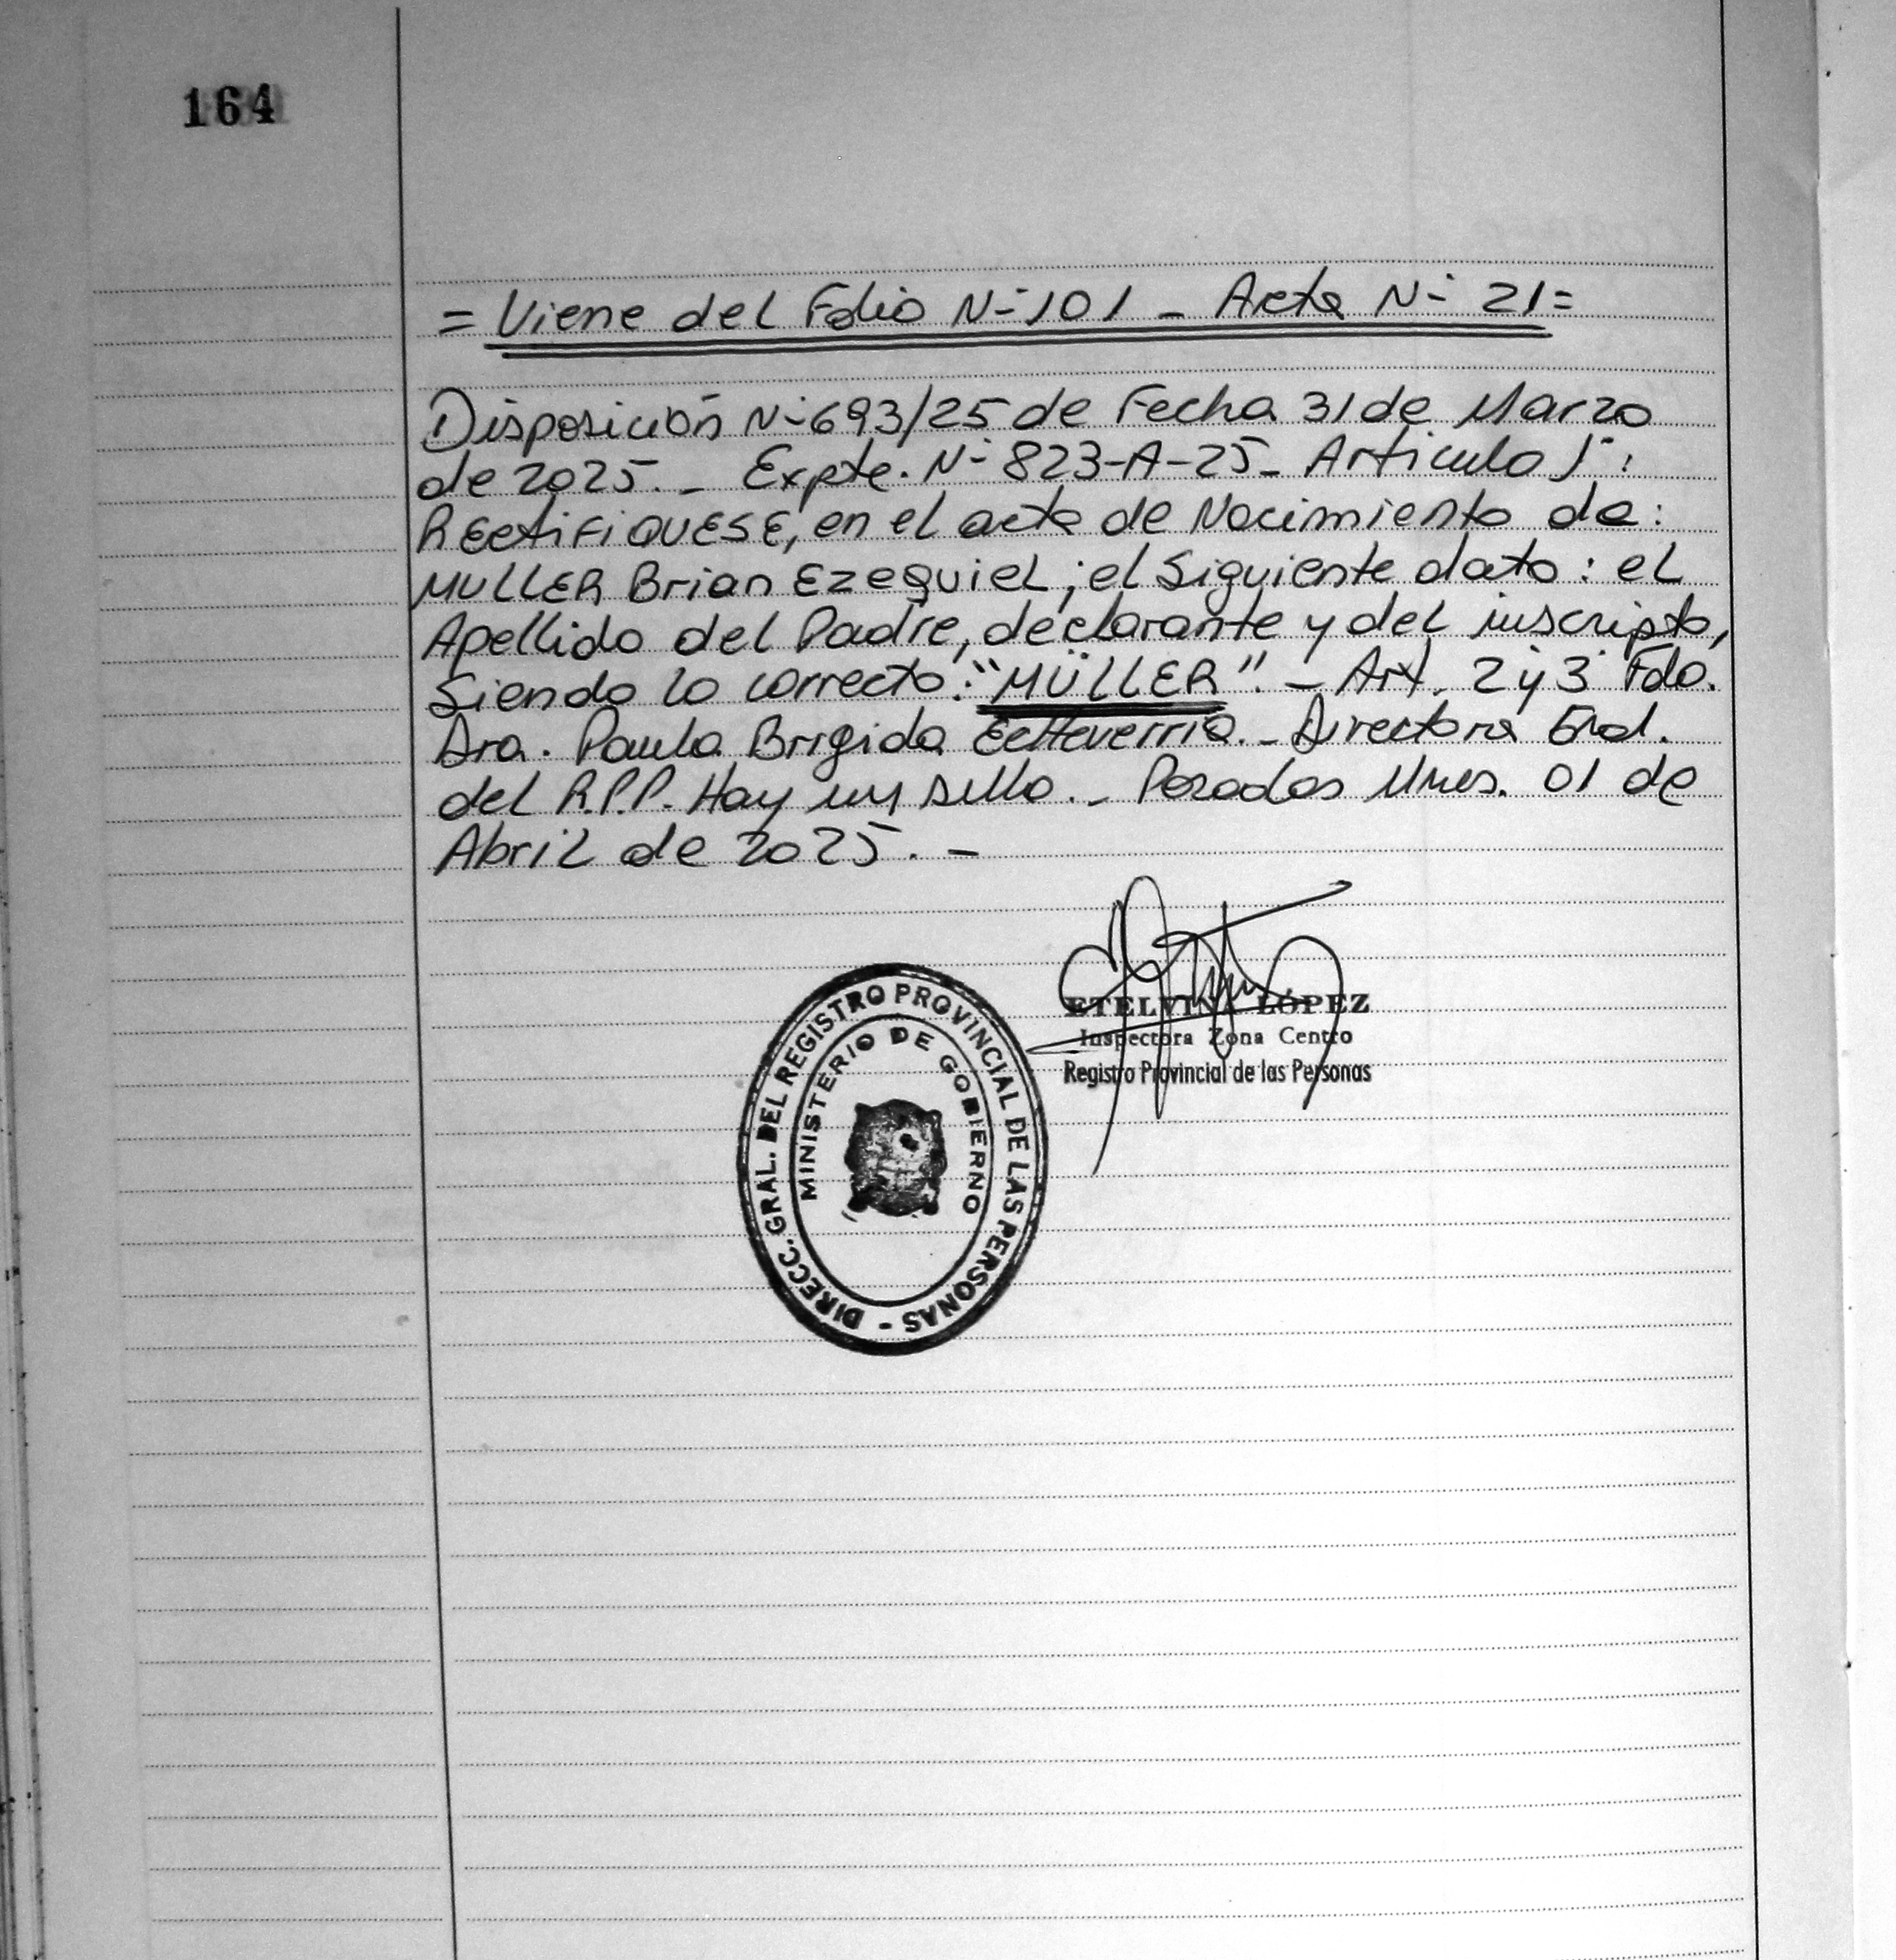 164
= Viene del Folio N- 101 - Acta N- 21 =
Disposición N- 693/25 de Fecha 31 de Marzo
de 2025. - Expte. N- 823-A-25 - Articulo 1°:
RECTIFIQUESE, en el acta de Nacimiento de:
MULLER Brian Ezequiel; el Siguiente dato: el
Apellido del Padre, declarante y del inscripto,
Siendo lo correcto: "MÜLLER". - Art. 2 y 3 Fdo.
Dra. Paula Brigida Echeverria. - Directora Gral.
del R.P.P. Hay un sello. - Posadas Mnes. 01 de
Abril de 2025. -
ETELVINA LÓPEZ
Inspectora Zona Centro
Registro Provincial de las Personas
DIRECC. GRAL. DEL REGISTRO PROVINCIAL DE LAS PERSONAS -
MINISTERIO DE GOBIERNO